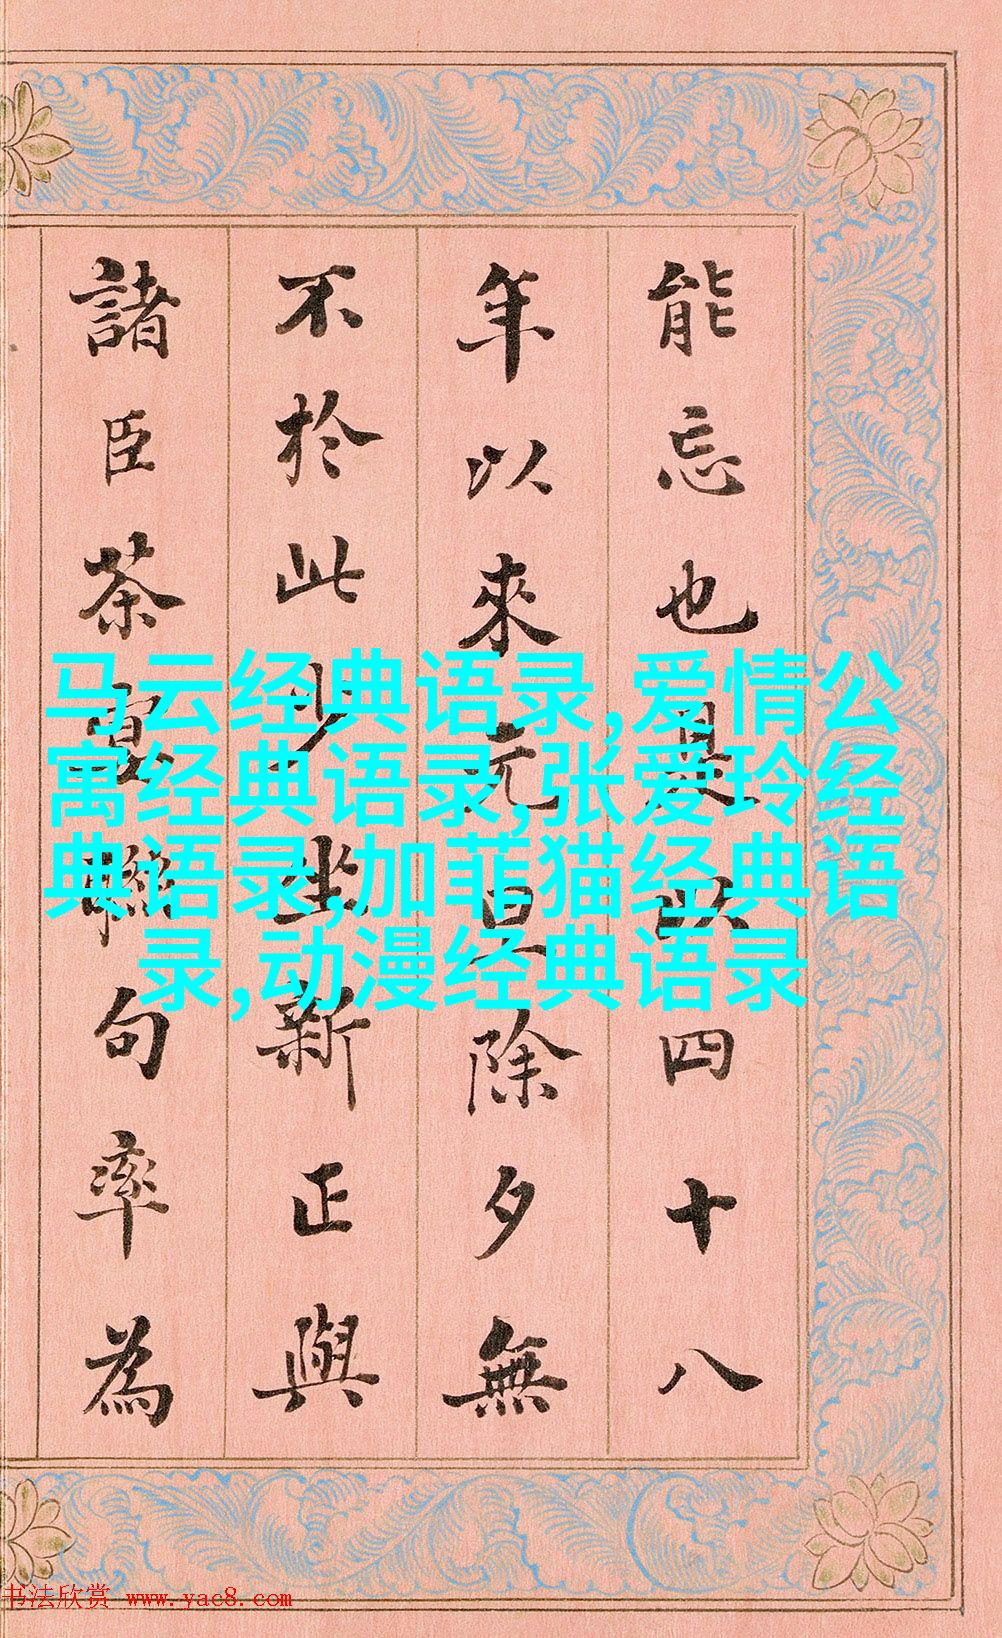 能忘也是以四十八
年以來元旦除夕無
不於此少坐新正與
諸臣茶宴聯句率為
马云经典语录,爱情公
寓经典语录,张爱玲经
典语录,加菲猫经典语
录,动漫经典语录
书法欣赏 www.yac8.com